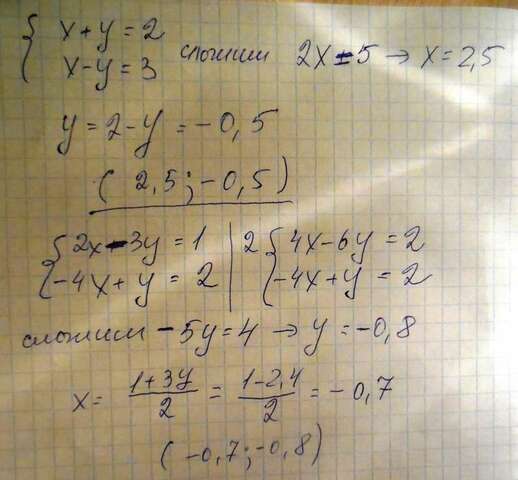 { x+y=2
x-y=3 сложим 2x=5 → x=2,5
y=2-y=-0,5
(2,5;-0,5)
{ 2x-3y=1 | 2 { 4x-6y=2
-4x+y=2 | -4x+y=2
сложим -5y=4 → y=-0,8
x= (1+3y)/2 = (1-2,4)/2 = -0,7
(-0,7;-0,8)